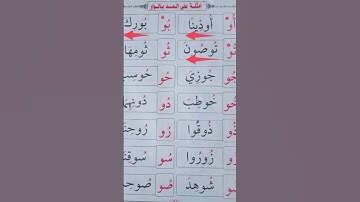 امثلة على المد بالواو
أُو أُوذِينَا بُو بُورِكَ
تُو تُوصُونَ ثُو ثُومِهَا
جُو جُوزِيَ حُو حُوسِبَ
خُو خُوطِبَ دُو دُونِهِمَا
ذُو ذُوقُوا رُو
زُو زُورُوا سُو
شُو شُوهِدَ صُو